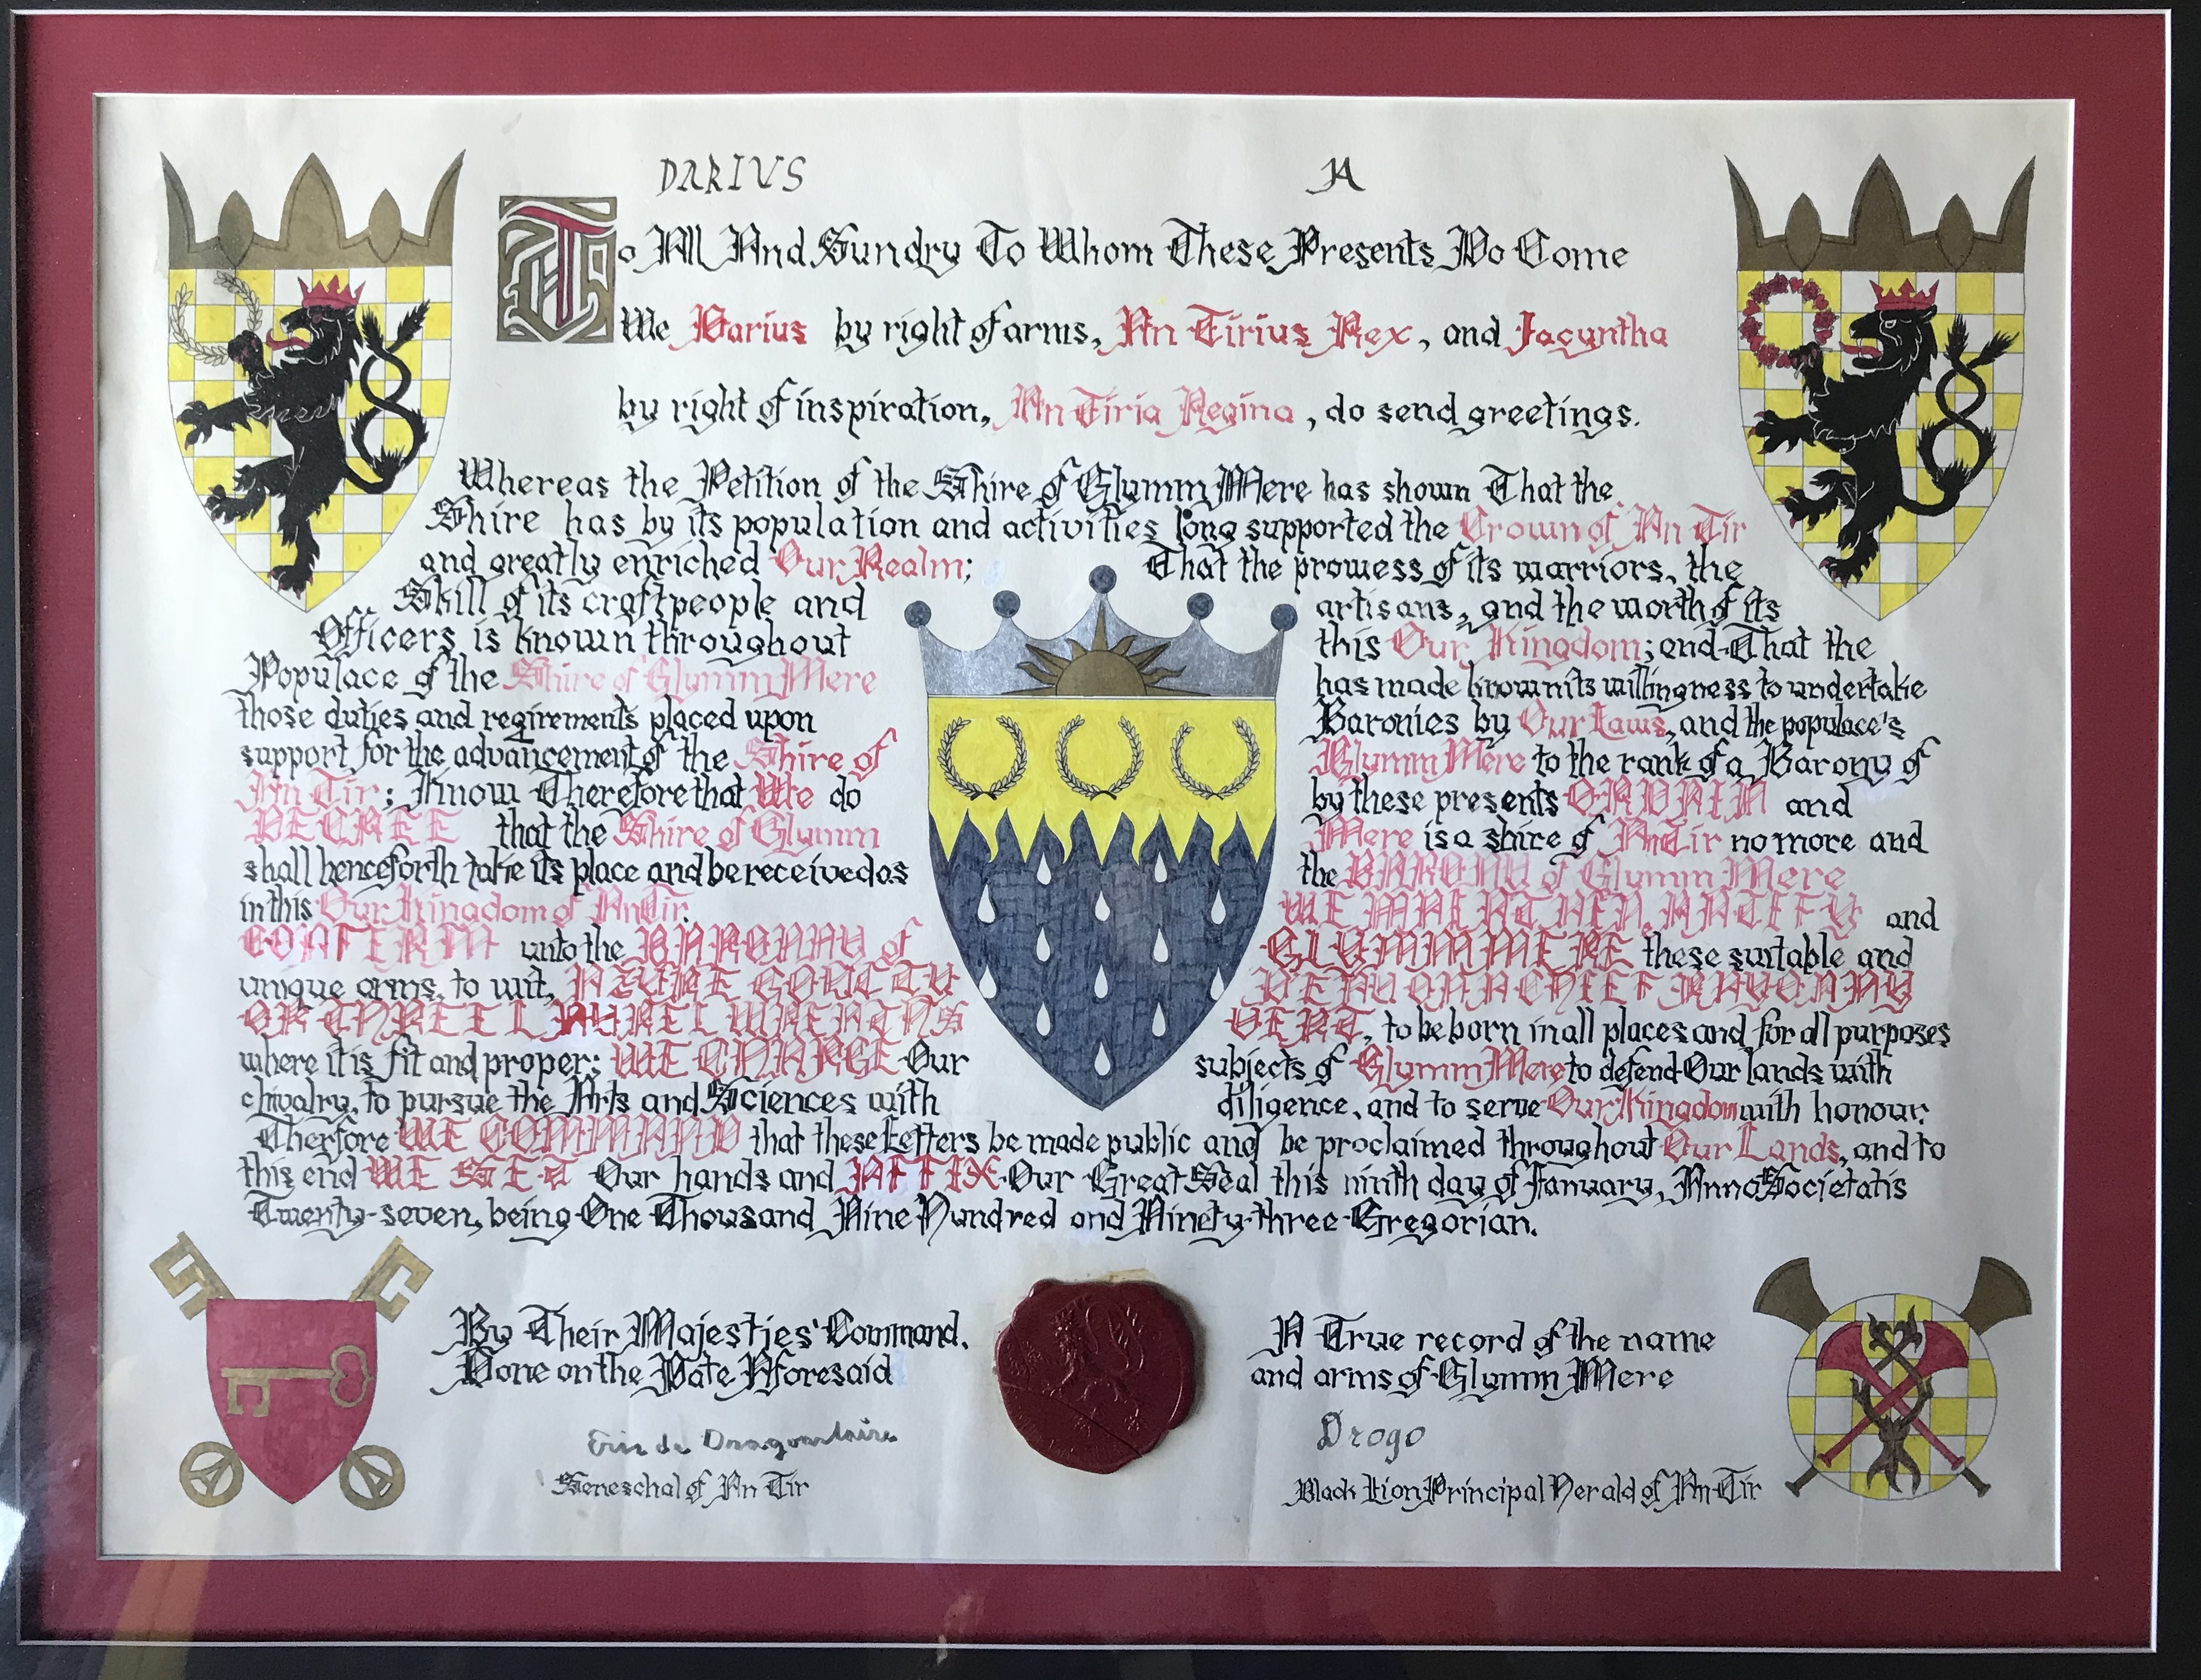 DARIUS JA
To All And Sundry To Whom These Presents Do Come
We Darius by right of arms, An Tirius Rex, and Jacyntha
by right of inspiration, An Tiria Regina, do send greetings.
Whereas the Petition of the Shire of Glymm Mere has shown That the
Shire has by its population and activities long supported the Crown of An Tir
and greatly enriched Our Realm; That the prowess of its warriors, the
Skill of its craftpeople and artisans, and the worth of its
Officers is known throughout this Our Kingdom; and That the
Populace of the Shire of Glymm Mere has made known its willingness to undertake
those duties and reqirements placed upon Baronies by Our Laws, and the populace's
support for the advancement of the Shire of Glymm Mere to the rank of a Barony of
An Tir; Know Therefore that We do by these presents ORDAIN and
DECREE that the Shire of Glymm Mere is a shire of An Tir no more and
shall henceforth take its place and be received as the BARONY of Glymm Mere
in this Our Kingdom of An Tir. WE and
CONFIRM unto the BARONNY of GLYMM MERE these suitable and
unique arms, to wit, AZURE GOUTTY DE EAU ON A CHIEF RAYONNY
OR THREE LAUREL WREATHS VERT, to be born in all places and for all purposes
where it is fit and proper; WE CHARGE Our subjects of Glymm Mere to defend Our lands with
chivalry, to pursue the Arts and Sciences with diligence, and to serve Our Kingdom with honour.
Therfore WE COMMAND that these Letters be made public and be proclaimed throughout Our Lands, and to
this end WE SET Our hands and AFFIX Our Great Seal this ninth day of January, Anno Societatis
Twenty-seven, being One Thousand Nine Hundred and Ninety-three Gregorian.
By Their Majesties' Command, A True record of the name
Done on the Date Aforesaid and arms of Glymm Mere
Eric de Dragonslaire Drogo
Seneschal of An Tir Black Lion Principal Herald of An Tir